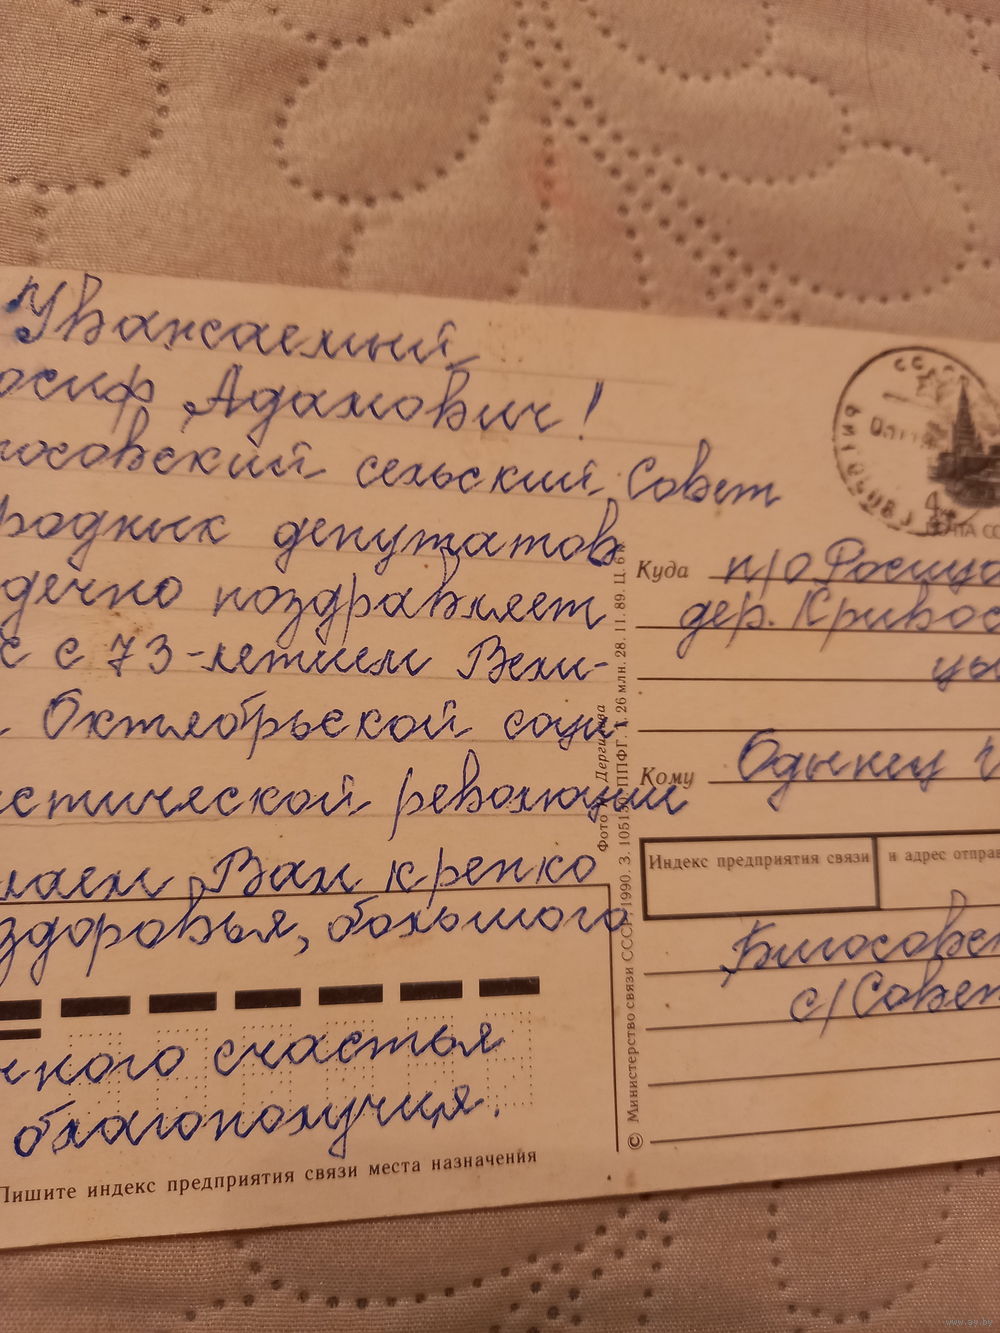 Уважаемый
осиф Адамович!
госовский сельский Совет
родных депутатов
дечно поздравляет
с с 73-летием Вели-
Октябрьской соци-
истической революции
лаем Вам крепко
здоровья, большого
чного счастья
благополучия.
Пишите индекс предприятия связи места назначения
Фото Дергилёва
© Министерство связи СССР, 1990. З. 105150. ППФГ. 26 млн. 28. 11. 89. Ц. 6 к.
СССР
4
ПОЧТА СС
Куда п/о Росица
дер. Кривос
цы
Кому Одынец И
Индекс предприятия связи и адрес отправ
Бигосовс
с/Совет
www.ay.by